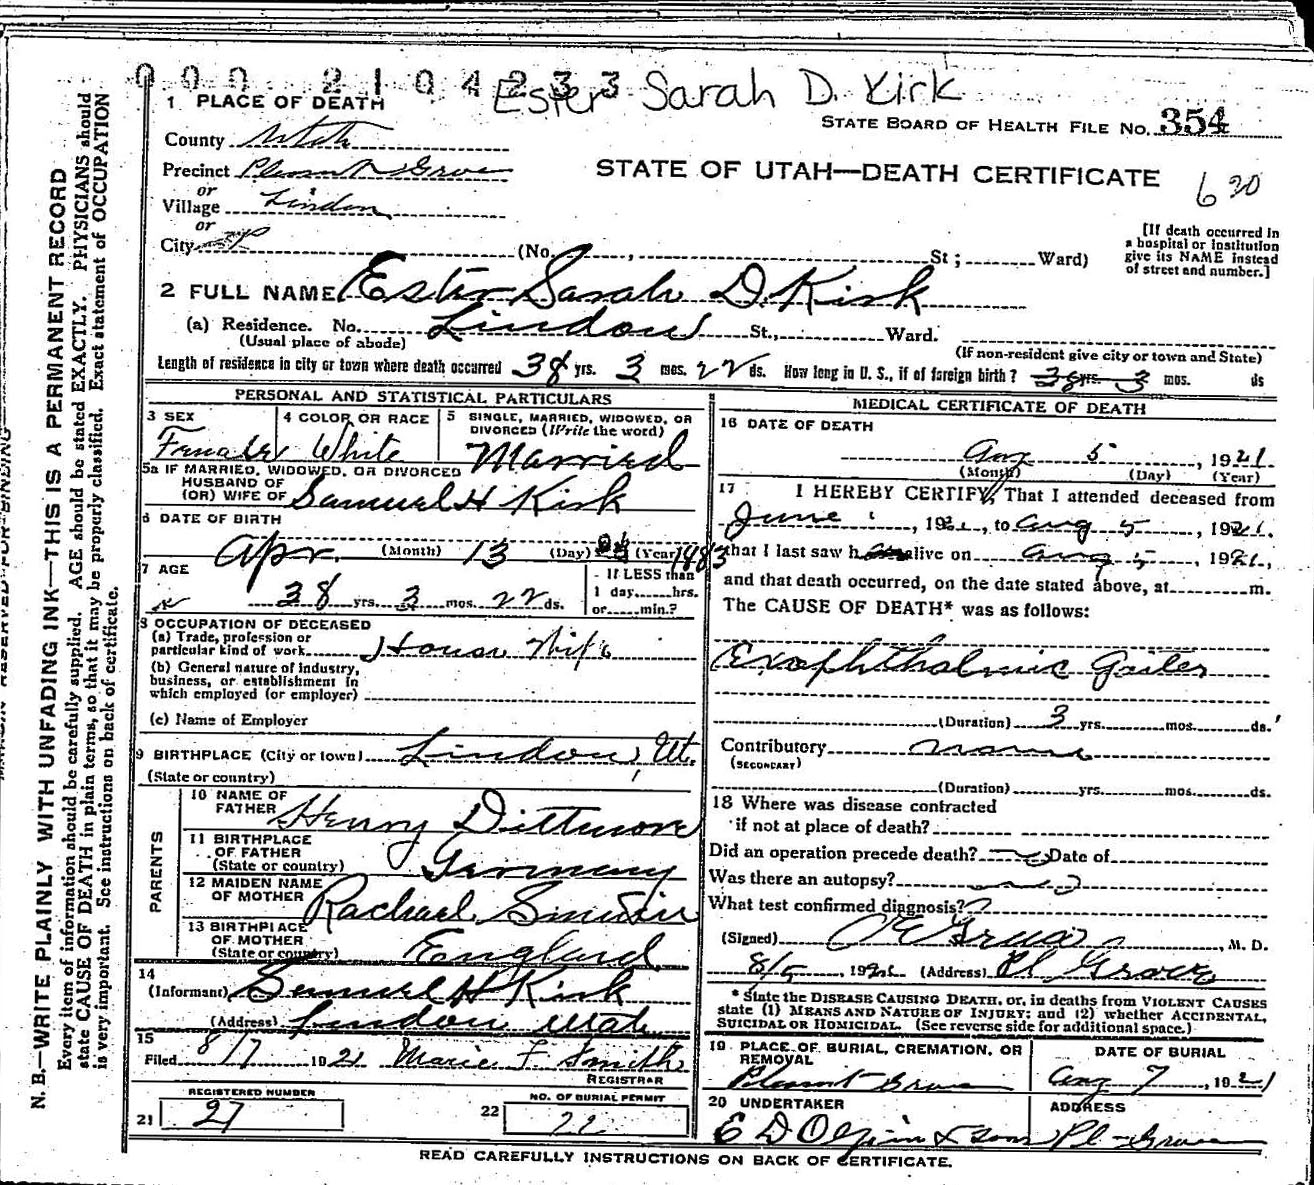 000 2104233
Ester Sarah D. Kirk
1 PLACE OF DEATH
STATE BOARD OF HEALTH FILE NO. 354
County Utah
STATE OF UTAH—DEATH CERTIFICATE 620
Precinct Pleasant Grove
or
Village Lindon
or
City
(No. , St ; Ward)
[If death occurred in
a hospital or institution
give its NAME instead
of street and number.]
2 FULL NAME Ester Sarah D. Kirk
(a) Residence. No. Lindon St., Ward.
(Usual place of abode) (If non-resident give city or town and State)
Length of residence in city or town where death occurred 38 yrs. 3 mos. 22 ds. How long in U. S., if of foreign birth? 38 yrs. 3 mos. ds
PERSONAL AND STATISTICAL PARTICULARS
3 SEX Female
4 COLOR OR RACE White
5 SINGLE, MARRIED, WIDOWED, OR
DIVORCED (Write the word)
Married
5a IF MARRIED, WIDOWED, OR DIVORCED
HUSBAND OF
(OR) WIFE OF Samuel H Kirk
6 DATE OF BIRTH
Apr. (Month) 13 (Day) (Year) 1883
7 AGE
38 yrs. 3 mos. 22 ds.
If LESS than
1 day hrs.
or min.?
8 OCCUPATION OF DECEASED
(a) Trade, profession or
particular kind of work House Wife
(b) General nature of industry,
business, or establishment in
which employed (or employer)
(c) Name of Employer
9 BIRTHPLACE (City or town) Lindon, Ut.
(State or country)
PARENTS
10 NAME OF
FATHER Henry Dittmore
11 BIRTHPLACE
OF FATHER
(State or country) Germany
12 MAIDEN NAME
OF MOTHER Rachael
13 BIRTHPLACE
OF MOTHER
(State or country) England
14
(Informant) Samuel H Kirk
(Address) Lindon Utah
15
Filed 8/7 1921 Marie F Smith
REGISTRAR
REGISTERED NUMBER
21 27
NO. OF BURIAL PERMIT
22 22
MEDICAL CERTIFICATE OF DEATH
16 DATE OF DEATH
Aug 5 , 1921
(Month) (Day) (Year)
17 I HEREBY CERTIFY, That I attended deceased from
June 1, 1921, to Aug 5, 1921.
that I last saw h alive on Aug 5, 1921,
and that death occurred, on the date stated above, at m.
The CAUSE OF DEATH* was as follows:
Exophthalmic Goiter
(Duration) 3 yrs. mos. ds.
Contributory none
(SECONDARY)
(Duration) yrs. mos. ds.
18 Where was disease contracted
if not at place of death?
Did an operation precede death? no Date of
Was there an autopsy? no
What test confirmed diagnosis?
(Signed) , M. D.
8/5, 1921 (Address) Pl Grove
* State the DISEASE CAUSING DEATH, or, in deaths from VIOLENT CAUSES
state (1) MEANS AND NATURE OF INJURY; and (2) whether ACCIDENTAL,
SUICIDAL OR HOMICIDAL. (See reverse side for additional space.)
19 PLACE OF BURIAL, CREMATION, OR
REMOVAL
Pleasant Grove
DATE OF BURIAL
Aug 7, 1921
20 UNDERTAKER
E D Olpin & Sons
ADDRESS
Pl-Grove
READ CAREFULLY INSTRUCTIONS ON BACK OF CERTIFICATE.
N. B.—WRITE PLAINLY WITH UNFADING INK—THIS IS A PERMANENT RECORD
Every item of information should be carefully supplied. AGE should be stated EXACTLY. PHYSICIANS should
state CAUSE OF DEATH in plain terms, so that it may be properly classified. Exact statement of OCCUPATION
is very important. See instructions on back of certificate.